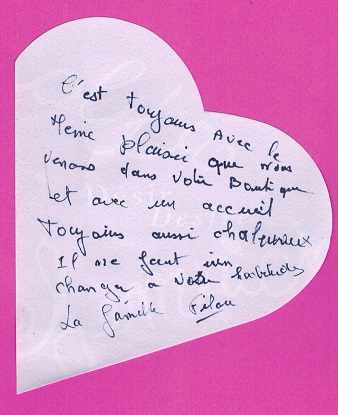 C'est toujours avec le
même plaisir que nous
venons dans votre Boutique
et avec un accueil
toujours aussi chaleureux
Il ne faut rien
changer a votre habitudes
La famille